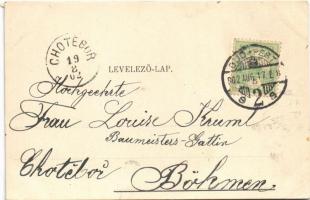 CHOTĚBOŘ
19
8
02
LEVELEZŐ-LAP.
902 AUG. 17.
Hochgeehrte
Frau Louise Kruml
Baumeisters Gattin
Chotěboř
Böhmen.